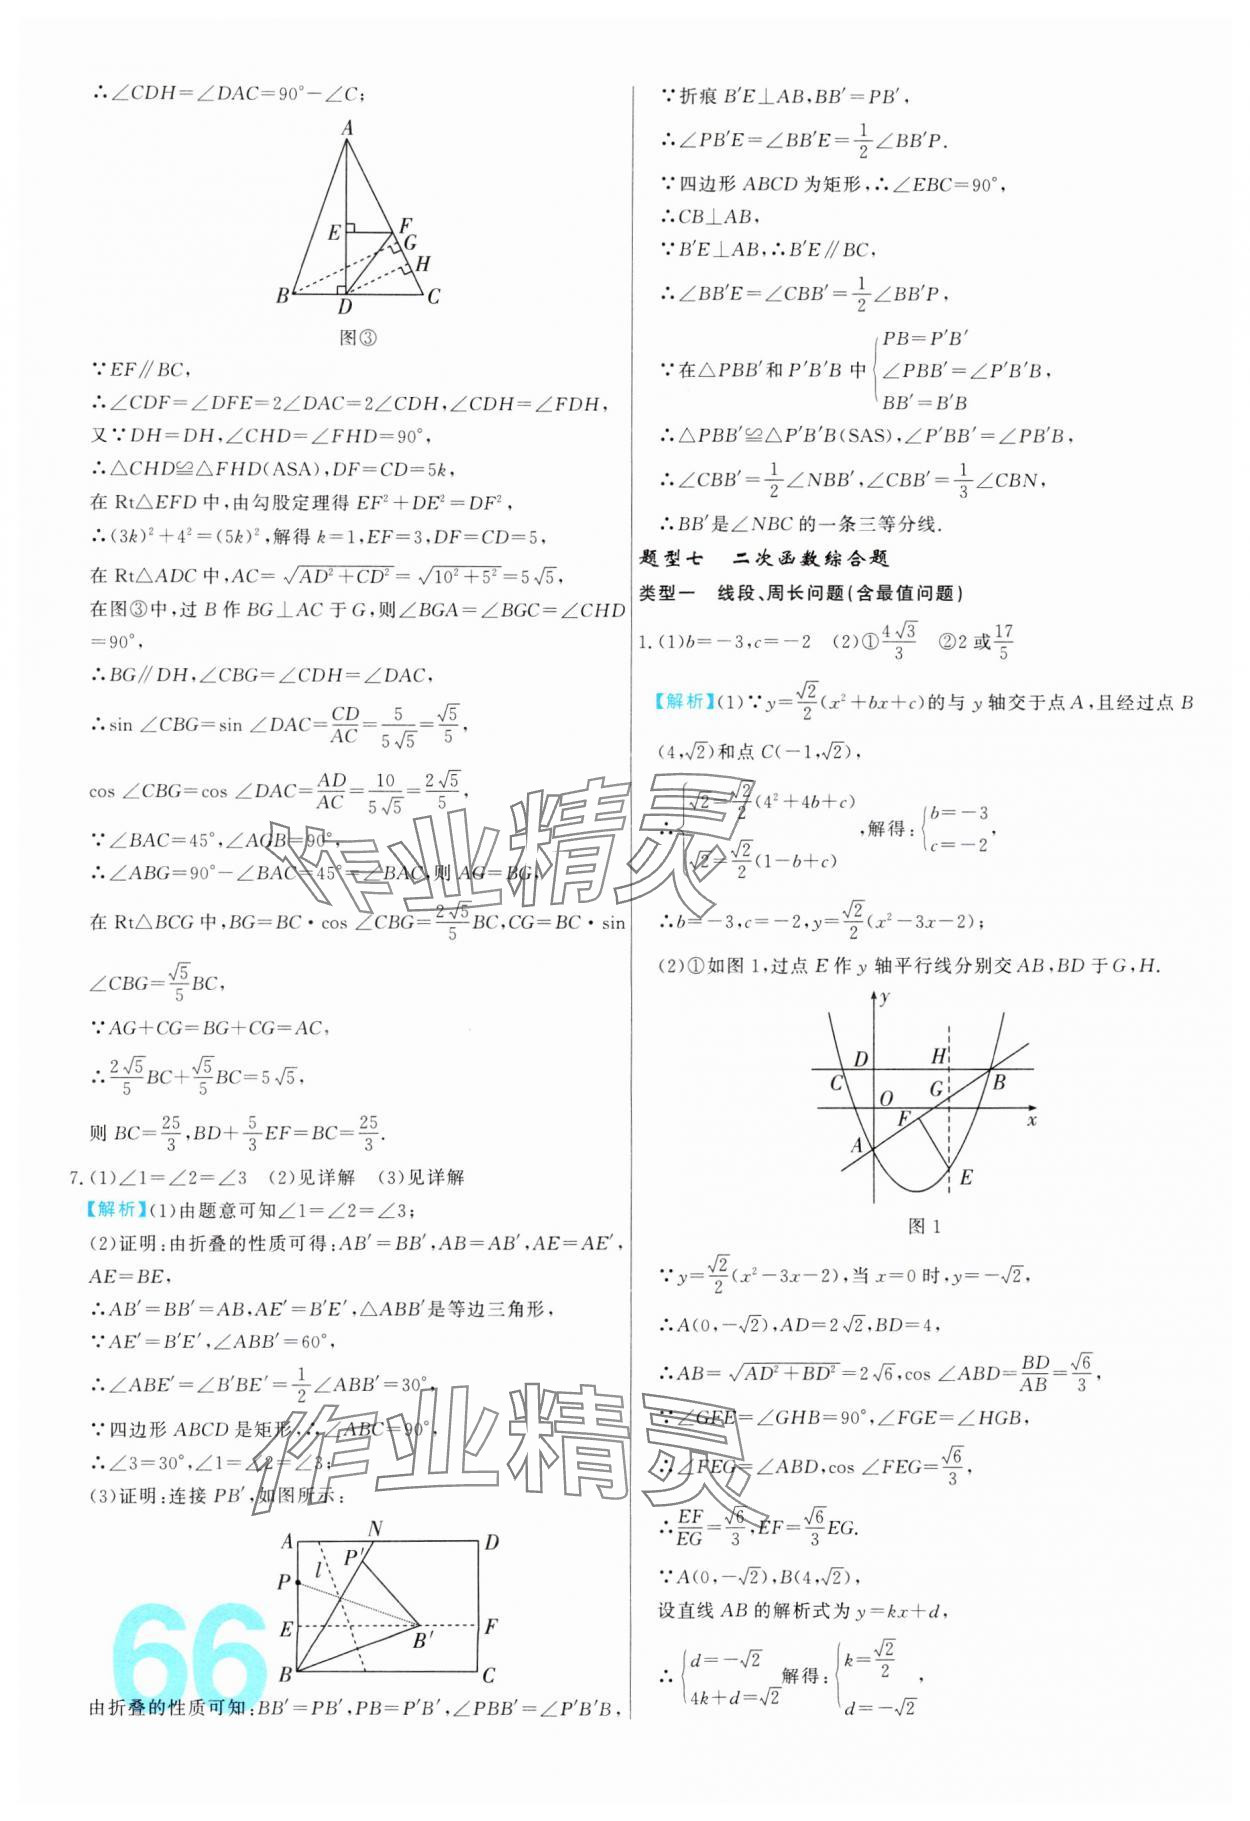 ∴∠CDH=∠DAC=90°-∠C;
A
E
F
G
H
B
D
C
图③
∵EF∥BC,
∴∠CDF=∠DFE=2∠DAC=2∠CDH,∠CDH=∠FDH,
又∵DH=DH,∠CHD=∠FHD=90°,
∴△CHD≌△FHD(ASA),DF=CD=5k,
在 Rt△EFD 中,由勾股定理得 EF²+DE²=DF²,
∴(3k)²+4²=(5k)²,解得 k=1,EF=3,DF=CD=5,
在 Rt△ADC 中,AC=√(AD²+CD²)=√(10²+5²)=5√5,
在图③中,过 B 作 BG⊥AC 于 G,则∠BGA=∠BGC=∠CHD
=90°,
∴BG∥DH,∠CBG=∠CDH=∠DAC,
∴sin ∠CBG=sin ∠DAC=CD/AC=5/(5√5)=√5/5,
cos ∠CBG=cos ∠DAC=AD/AC=10/(5√5)=2√5/5,
∵∠BAC=45°,∠AGB=90°,
∴∠ABG=90°-∠BAC=45°=∠BAC,则 AG=BG,
在 Rt△BCG 中,BG=BC·cos ∠CBG=(2√5/5)BC,CG=BC·sin
∠CBG=(√5/5)BC,
∵AG+CG=BG+CG=AC,
∴(2√5/5)BC+(√5/5)BC=5√5,
则 BC=25/3,BD+(5/3)EF=BC=25/3.
7.(1)∠1=∠2=∠3 (2)见详解 (3)见详解
【解析】(1)由题意可知∠1=∠2=∠3;
(2)证明:由折叠的性质可得:AB′=BB′,AB=AB′,AE=AE′,
AE=BE,
∴AB′=BB′=AB,AE′=B′E′,△ABB′是等边三角形,
∵AE′=B′E′,∠ABB′=60°,
∴∠ABE′=∠B′BE′=1/2∠ABB′=30°,
∵四边形 ABCD 是矩形,∴∠ABC=90°,
∴∠3=30°,∠1=∠2=∠3;
(3)证明:连接 PB′,如图所示:
A
N
D
P′
l
P
E
B′
F
B
C
66
由折叠的性质可知:BB′=PB′,PB=P′B′,∠PBB′=∠P′B′B,
∵折痕 B′E⊥AB,BB′=PB′,
∴∠PB′E=∠BB′E=1/2∠BB′P.
∵四边形 ABCD 为矩形,∴∠EBC=90°,
∴CB⊥AB,
∵B′E⊥AB,∴B′E∥BC,
∴∠BB′E=∠CBB′=1/2∠BB′P,
∵在△PBB′和 P′B′B 中{PB=P′B′
∠PBB′=∠P′B′B,
BB′=B′B
∴△PBB′≌△P′B′B(SAS),∠P′BB′=∠PB′B,
∴∠CBB′=1/2∠NBB′,∠CBB′=1/3∠CBN,
∴BB′是∠NBC 的一条三等分线.
题型七 二次函数综合题
类型一 线段、周长问题(含最值问题)
1.(1)b=-3,c=-2 (2)①4√3/3 ②2 或17/5
【解析】(1)∵y=√2/2(x²+bx+c)的与 y 轴交于点 A,且经过点 B
(4,√2)和点 C(-1,√2),
∴{√2=√2/2(4²+4b+c)
√2=√2/2(1-b+c),解得:{b=-3
c=-2,
∴b=-3,c=-2,y=√2/2(x²-3x-2);
(2)①如图 1,过点 E 作 y 轴平行线分别交 AB,BD 于 G,H.
y
D
H
C
B
O
G
F
x
A
E
图 1
∵y=√2/2(x²-3x-2),当 x=0 时,y=-√2,
∴A(0,-√2),AD=2√2,BD=4,
∴AB=√(AD²+BD²)=2√6,cos ∠ABD=BD/AB=√6/3,
∵∠GFE=∠GHB=90°,∠FGE=∠HGB,
∴∠FEG=∠ABD,cos ∠FEG=√6/3,
∴EF/EG=√6/3,EF=(√6/3)EG.
∵A(0,-√2),B(4,√2),
设直线 AB 的解析式为 y=kx+d,
∴{d=-√2
4k+d=√2 解得:{k=√2/2
d=-√2,
作业精灵
作业精灵